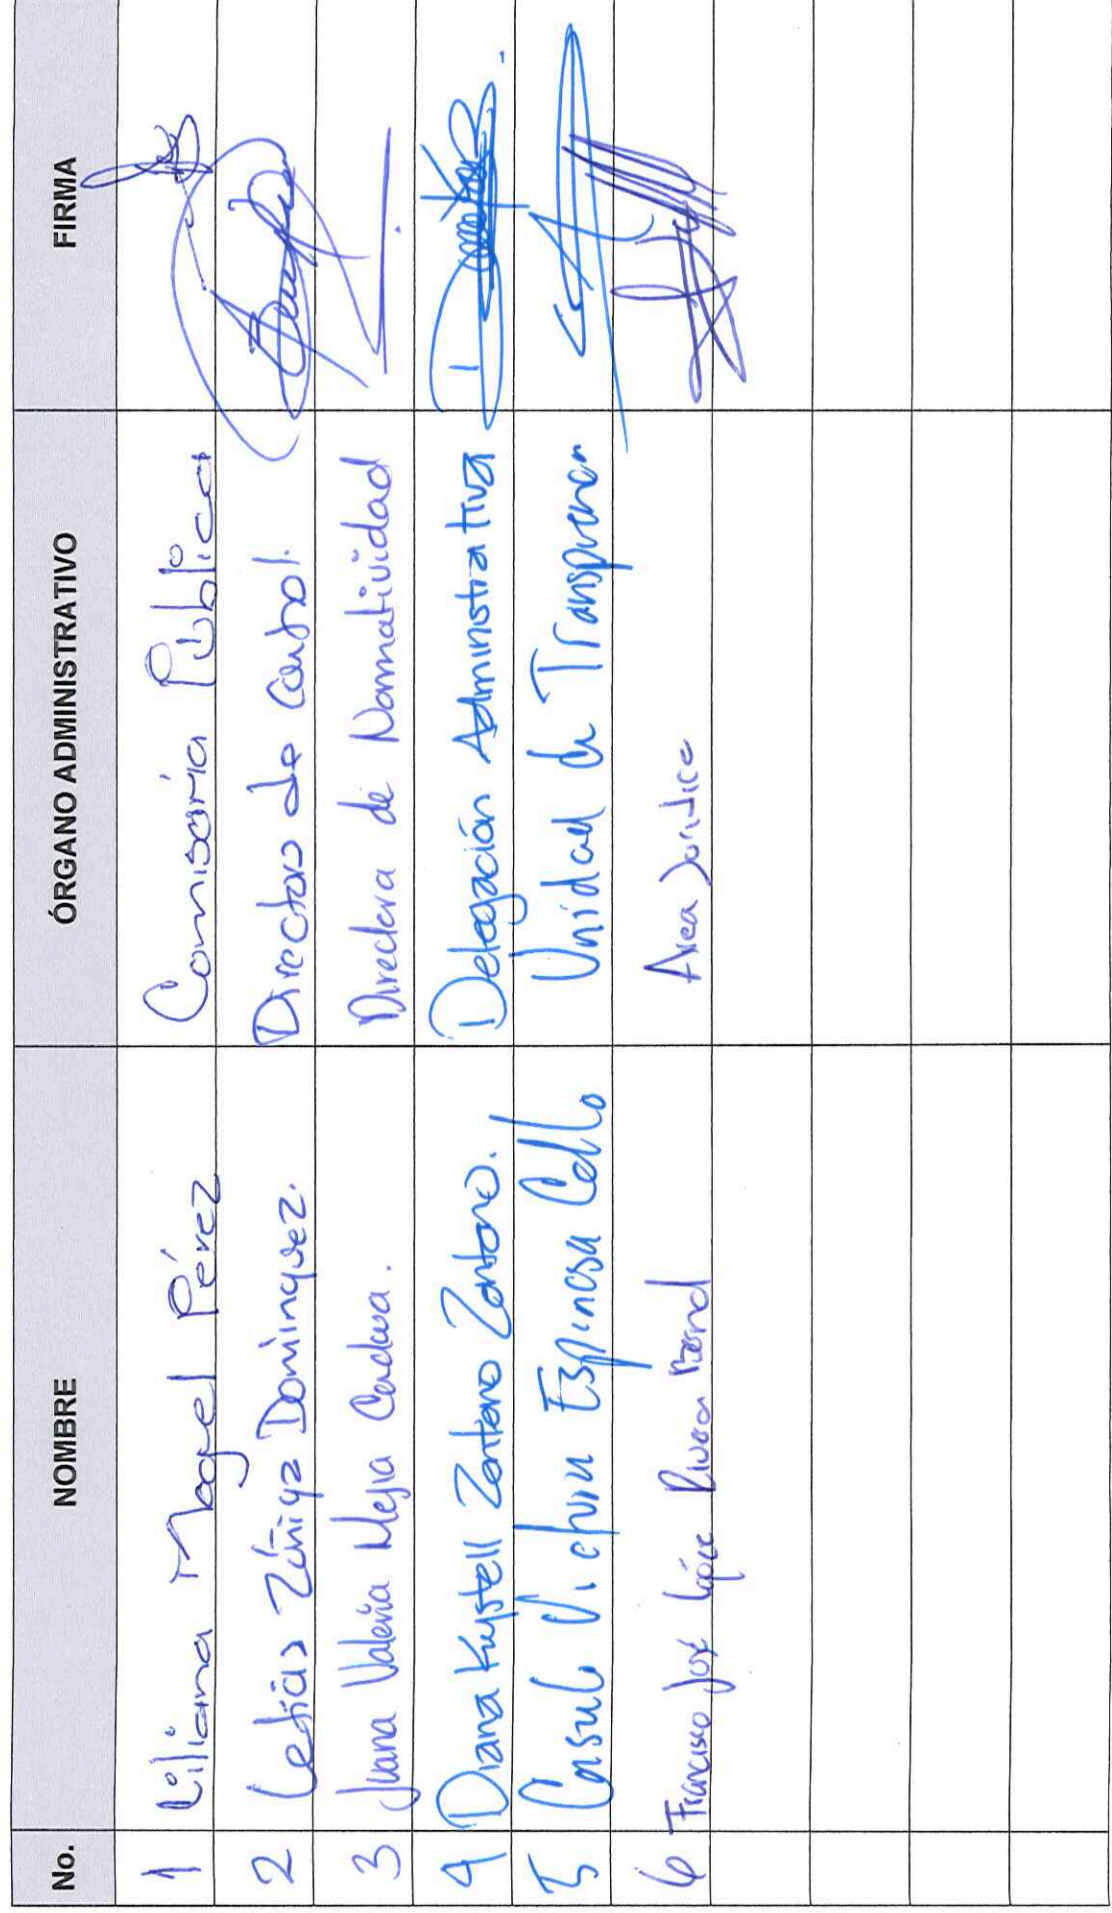 No. NOMBRE ÓRGANO ADMINISTRATIVO FIRMA
1 Liliana Magel Pérez Comisaria Pública
2 Leticia Zúñiga Dominguez. Directora de Control.
3 Juana Valeria Mejia Directora de Normatividad
4 Diana Krystell Zenteno Zenteno. Delegación Administrativa
5 Espinosa Unidad de
6 Francisco José López Rivera Area